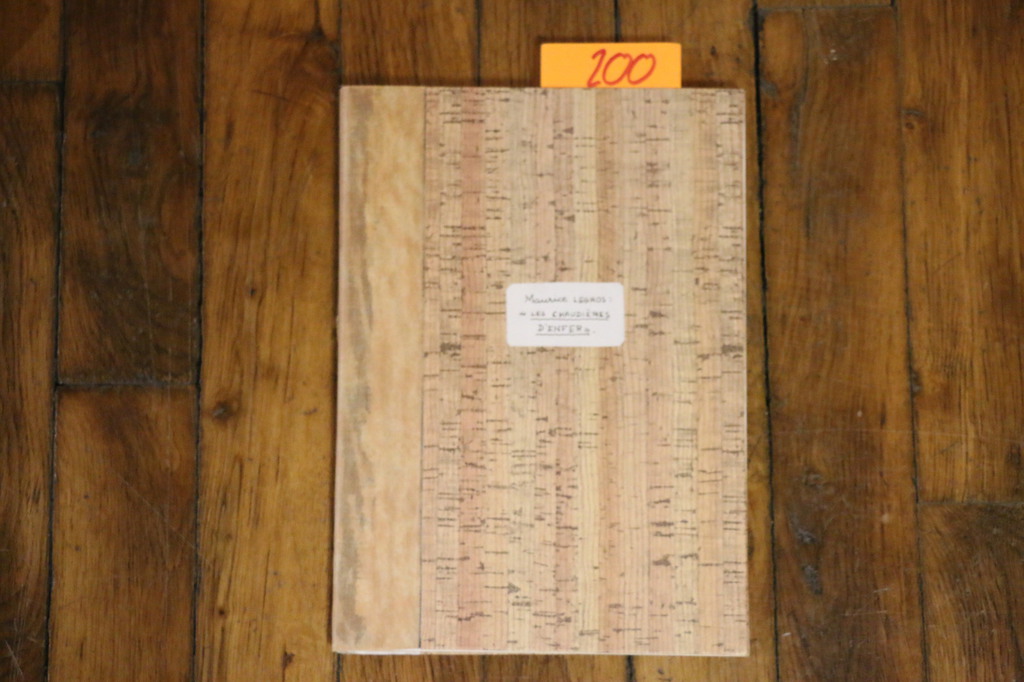 200
Maurice LEGROS :
« LES CHAUDIÈRES
D'ENFER ».